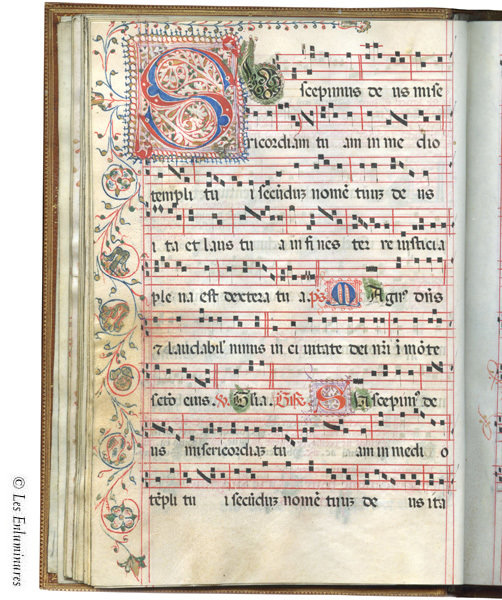 Suscepimus de us mise
ricordiam tu am in me dio
templi tu i secūdū nomē tuū de us
i ta et laus tu a in fines ter re iusticia
ple na est dextera tu a. ps. Magnus dn̄s
⁊ laudabil' nimis in ci uitate dei nr̄i ī mōte
scō eius. V. Gl'ia. Suscepim' de
us misericordiā tu am in medi o
tēpli tu i secūdū nomē tuū de us ita
© Les Enluminures